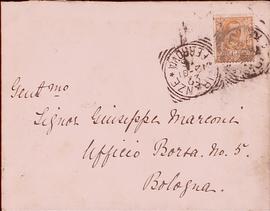 Gent.mo
Signor Giuseppe Marconi
Ufficio Borsa. No. 5.
Bologna.
FERROVIA